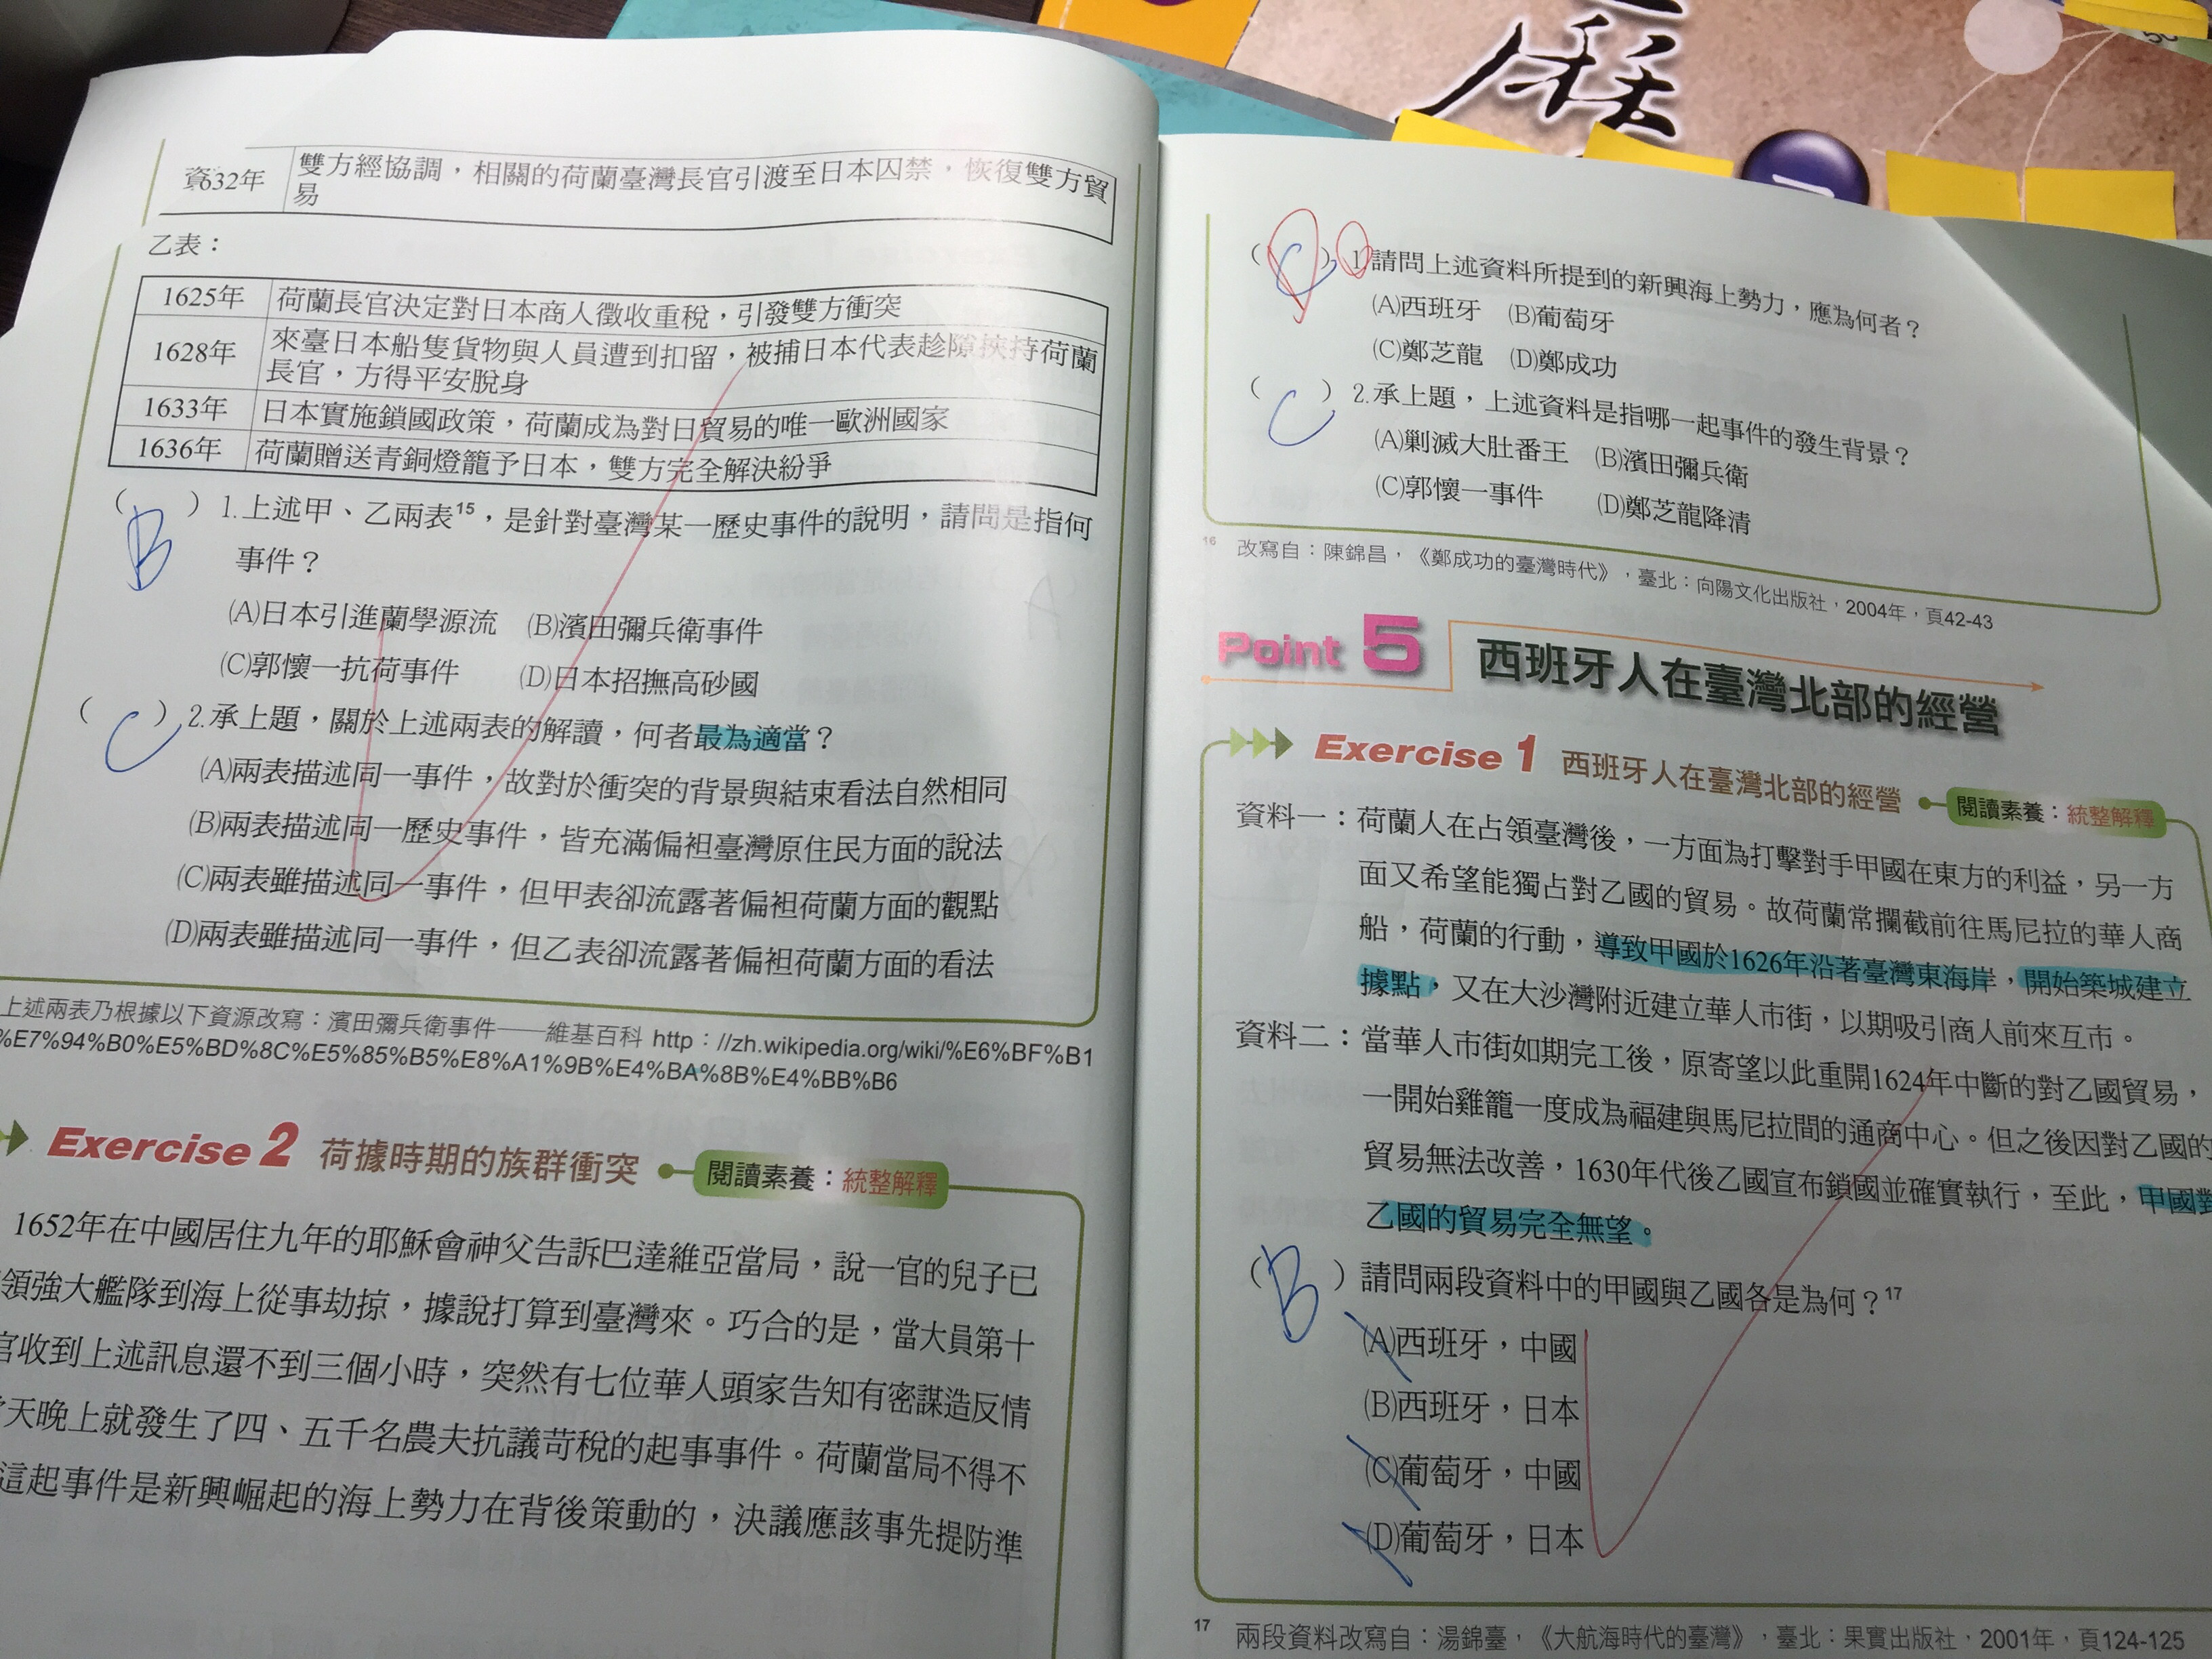 632年 雙方經協調，相關的荷蘭臺灣長官引渡至日本囚禁，恢復雙方貿
易
乙表：
1625年 荷蘭長官決定對日本商人徵收重稅，引發雙方衝突
1628年 來臺日本船隻貨物與人員遭到扣留，被捕日本代表趁隙挾持荷蘭
長官，方得平安脫身
1633年 日本實施鎖國政策，荷蘭成為對日貿易的唯一歐洲國家
1636年 荷蘭贈送青銅燈籠予日本，雙方完全解決紛爭
( B ) 1.上述甲、乙兩表15，是針對臺灣某一歷史事件的說明，請問是指何
事件？
(A)日本引進蘭學源流 (B)濱田彌兵衛事件
(C)郭懷一抗荷事件 (D)日本招撫高砂國
( C ) 2.承上題，關於上述兩表的解讀，何者最為適當？
(A)兩表描述同一事件，故對於衝突的背景與結束看法自然相同
(B)兩表描述同一歷史事件，皆充滿偏袒臺灣原住民方面的說法
(C)兩表雖描述同一事件，但甲表卻流露著偏袒荷蘭方面的觀點
(D)兩表雖描述同一事件，但乙表卻流露著偏袒荷蘭方面的看法
上述兩表乃根據以下資源改寫：濱田彌兵衛事件——維基百科 http：//zh.wikipedia.org/wiki/%E6%BF%B1
%E7%94%B0%E5%BD%8C%E5%85%B5%E8%A1%9B%E4%BA%8B%E4%BB%B6
Exercise 2 荷據時期的族群衝突 閱讀素養：統整解釋
1652年在中國居住九年的耶穌會神父告訴巴達維亞當局，說一官的兒子已
領強大艦隊到海上從事劫掠，據說打算到臺灣來。巧合的是，當大員第十
官收到上述訊息還不到三個小時，突然有七位華人頭家告知有密謀造反情
天晚上就發生了四、五千名農夫抗議苛稅的起事事件。荷蘭當局不得不
這起事件是新興崛起的海上勢力在背後策動的，決議應該事先提防準
( C ) 1.請問上述資料所提到的新興海上勢力，應為何者？
(A)西班牙 (B)葡萄牙
(C)鄭芝龍 (D)鄭成功
( C ) 2.承上題，上述資料是指哪一起事件的發生背景？
(A)剿滅大肚番王 (B)濱田彌兵衛
(C)郭懷一事件 (D)鄭芝龍降清
16 改寫自：陳錦昌，《鄭成功的臺灣時代》，臺北：向陽文化出版社，2004年，頁42-43
Point 5 西班牙人在臺灣北部的經營
Exercise 1 西班牙人在臺灣北部的經營 閱讀素養：統整解釋
資料一：荷蘭人在占領臺灣後，一方面為打擊對手甲國在東方的利益，另一方
面又希望能獨占對乙國的貿易。故荷蘭常攔截前往馬尼拉的華人商
船，荷蘭的行動，導致甲國於1626年沿著臺灣東海岸，開始築城建立
據點，又在大沙灣附近建立華人市街，以期吸引商人前來互市。
資料二：當華人市街如期完工後，原寄望以此重開1624年中斷的對乙國貿易，
一開始雞籠一度成為福建與馬尼拉間的通商中心。但之後因對乙國的
貿易無法改善，1630年代後乙國宣布鎖國並確實執行，至此，甲國對
乙國的貿易完全無望。
( B ) 請問兩段資料中的甲國與乙國各是為何？17
(A)西班牙，中國
(B)西班牙，日本
(C)葡萄牙，中國
(D)葡萄牙，日本
17 兩段資料改寫自：湯錦臺，《大航海時代的臺灣》，臺北：果實出版社，2001年，頁124-125